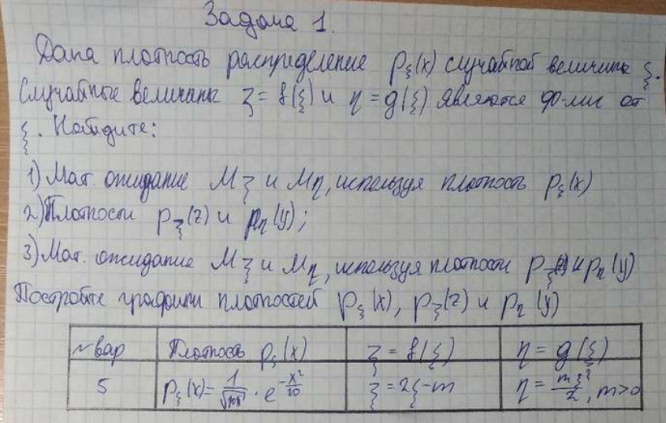 Задача 1.
Дана плотность распределение p_ξ(x) случайной величины ξ.
Случайные величины ζ = f(ξ) и η = g(ξ) являются ф-ми от
ξ. Найдите:
1) Мат. ожидание Mζ и Mη, используя плотность p_ξ(x)
2) Плотности p_ζ(z) и p_η(y);
3) Мат. ожидание Mζ и Mη, используя плотности p_ζ(z) и p_η(y)
Постройте графики плотностей p_ξ(x), p_ζ(z) и p_η(y)
№ вар | Плотность p_ξ(x) | ζ = f(ξ) | η = g(ξ)
5 | p_ξ(x) = 1/√(10π) · e^(-x²/10) | ζ = 2ξ - m | η = mξ²/2, m>0